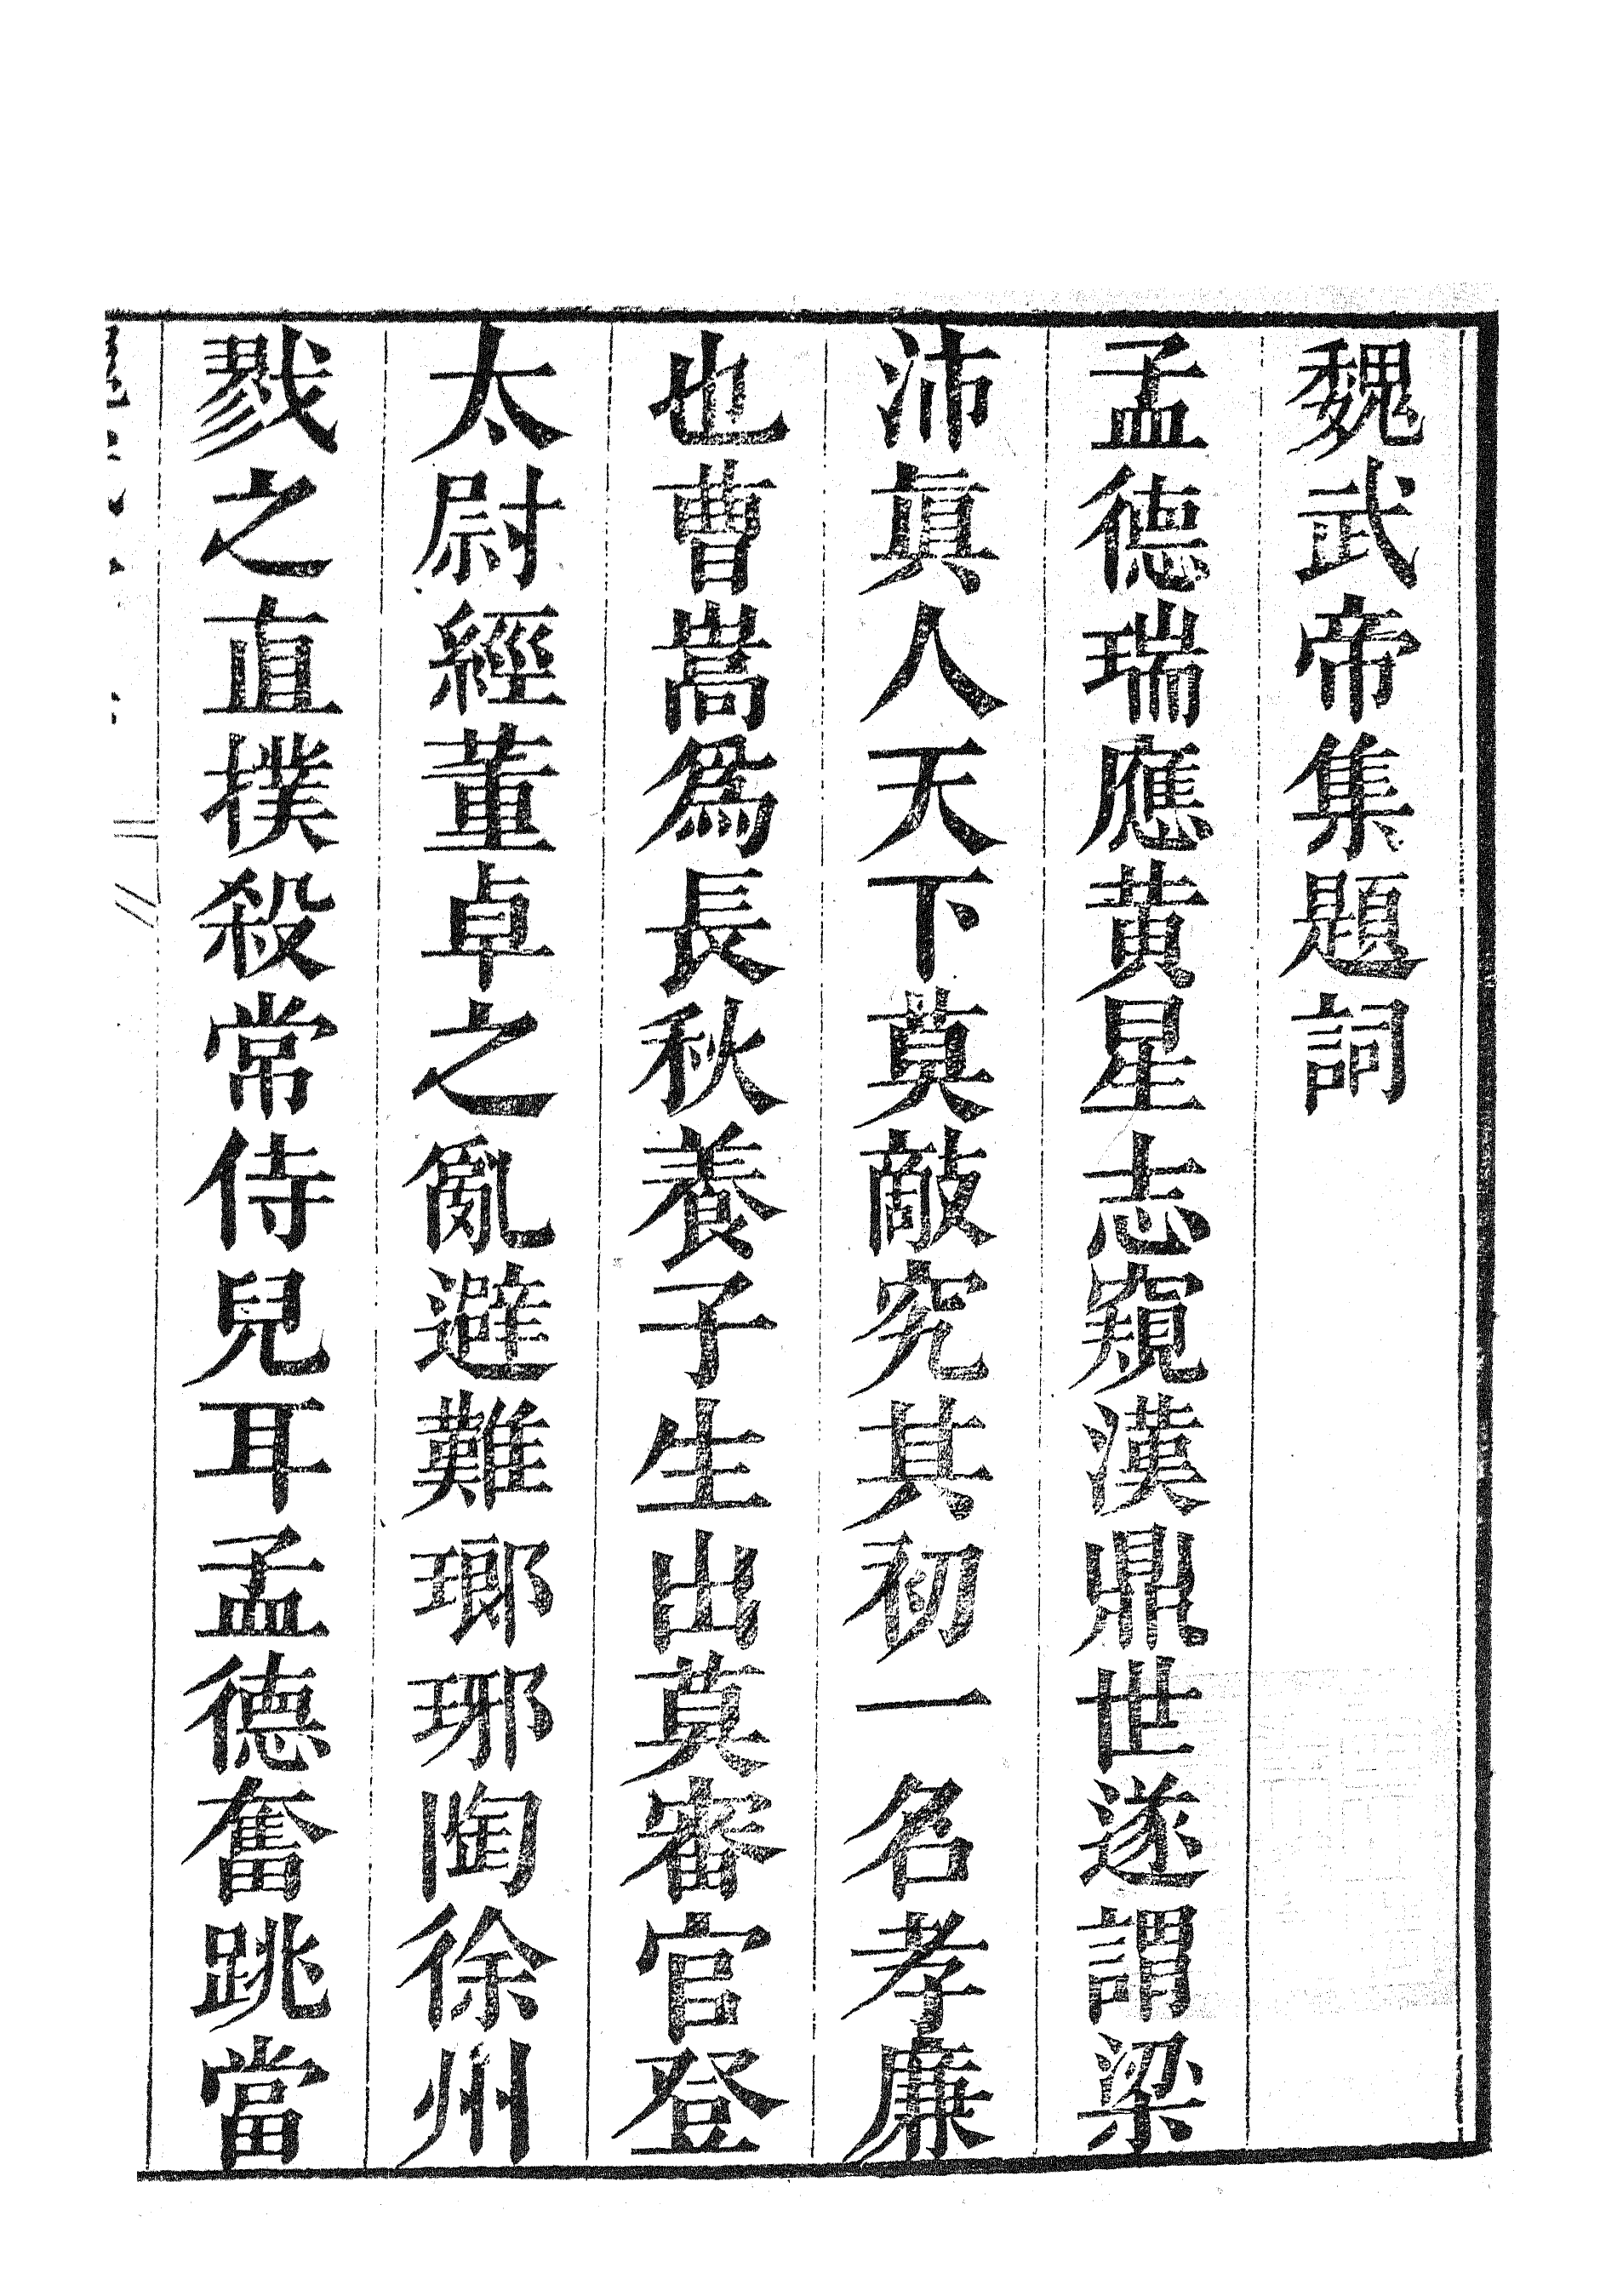 魏武帝集題詞
孟德瑞應黃星志窺漢鼎世遂謂梁
沛真人天下莫敵究其初一名孝廉
也曹嵩爲長秋養子生出莫審官登
太尉經董卓之亂避難瑯琊陶徐州
戮之直撲殺常侍兒耳孟德奮跳當